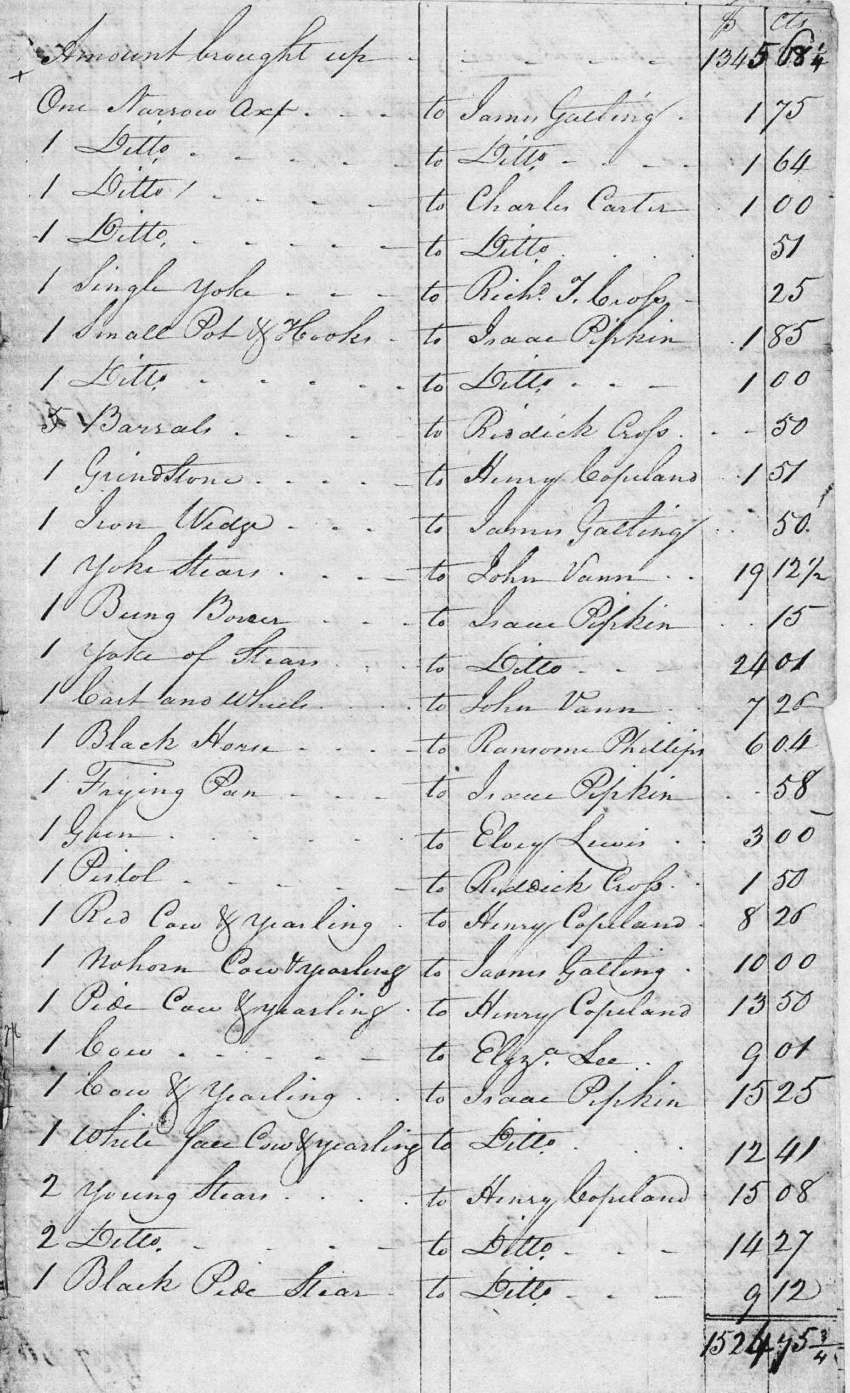 $ cts
Amount brought up - - - - - 1345 68 1/4
One Narrow axe - - - to James Gatling - 1 75
1 Ditto - - - - - to Ditto - - - 1 64
1 Ditto - - - - to Charles Carter - 1 00
1 Ditto - - - - - to Ditto 51
1 Single Yoke - - - to Richd. T. Cross - 25
1 Small Pot & Hooks - to Isaac Pipkin - 1 85
1 Ditto - - - - - to Ditto - - - 1 00
5 Barrals - - - - to Riddick Cross - - 50
1 GrindStone - - - - to Henry Copeland 1 51
1 Iron Wedge - - - to James Gatling 50
1 Yoke Stears - - - to John Vann - - 19 12 1/2
1 Bung Borer - - - to Isaac Pipkin - - 15
1 Yoke of Stears - - to Ditto - - - 24 01
1 Cart and Wheels - - to John Vann - 7 26
1 Black Horse - - - - to Ransome Phillips 6 04
1 Frying Pan - - - to Isaac Pipkin - - 58
1 Guen - - - - - - to Elvey Lewis - - 3 00
1 Pistol - - - - - - to Riddick Cross - - 1 50
1 Red Cow & yearling - to Henry Copeland - 8 26
1 Nohorn Cow & yearling to James Gatling - 10 00
1 Pide Cow & yearling - to Henry Copeland 13 50
1 Cow - - - - - to Elyza. Lee - - 9 01
1 Cow & Yearling - - to Isaac Pipkin 15 25
1 White face Cow & yearling to Ditto - - - 12 41
2 Young Stears - - - to Henry Copeland 15 08
2 Ditto - - - - - to Ditto - - - 14 27
1 Black Pide Stear - to Ditto - - - 9 12
1524 75 3/4